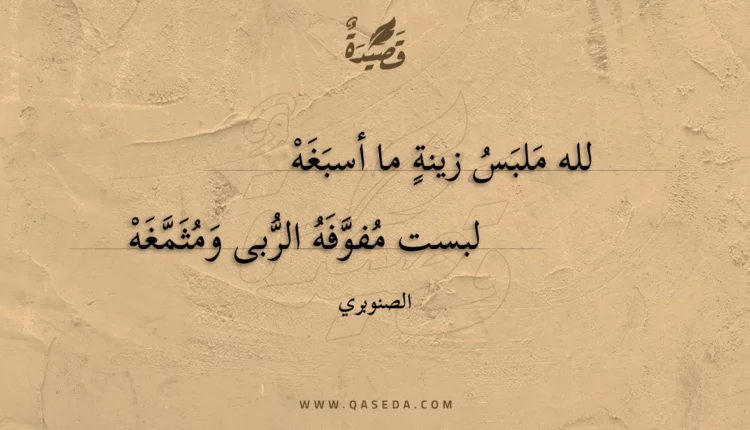 قَصِيْدَةٌ
لله مَلبَسُ زينةٍ ما أسبَغَهْ
لبست مُفوَّفَهُ الرُّبى وَمُثَمَّغَهْ
الصنوبري
WWW.QASEDA.COM